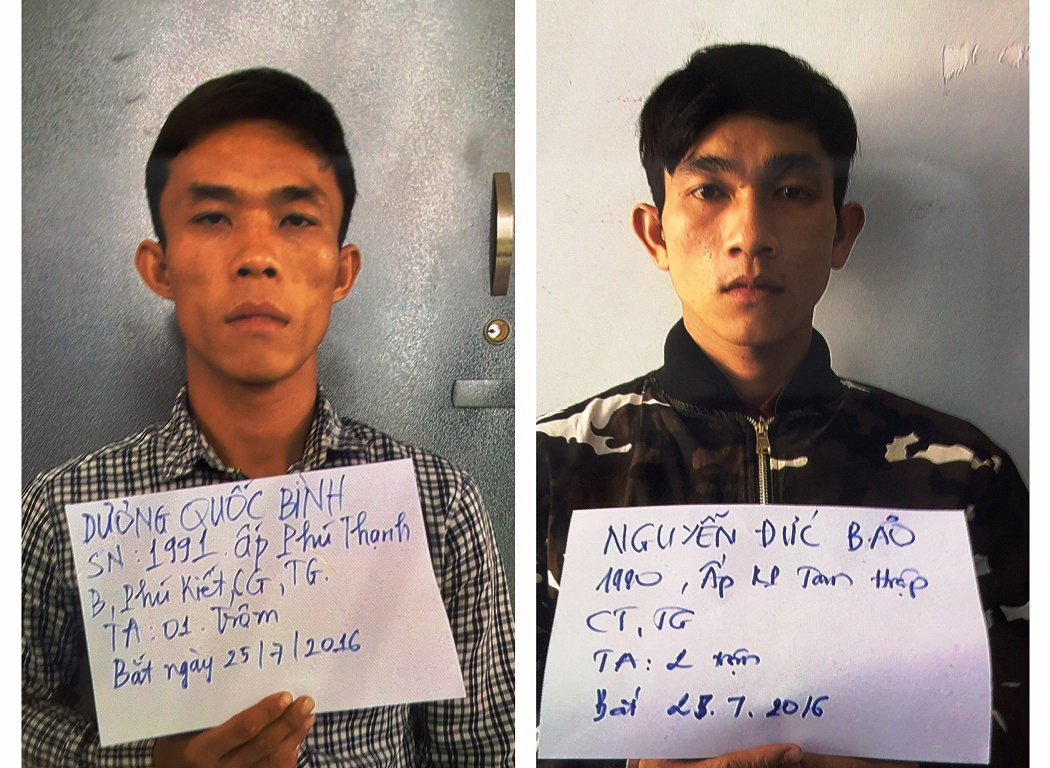 DƯƠNG QUỐC BÌNH
SN: 1991. ấp Phú Thạnh
B, Phú Kiết, CG, TG.
TA: 01. Trộm
Bắt ngày 25/7/2016
NGUYỄN ĐỨC BẢO
1990, Ấp KP Tam thập
CT, TG
TA: 2 trộm
Bắt 25.7.2016